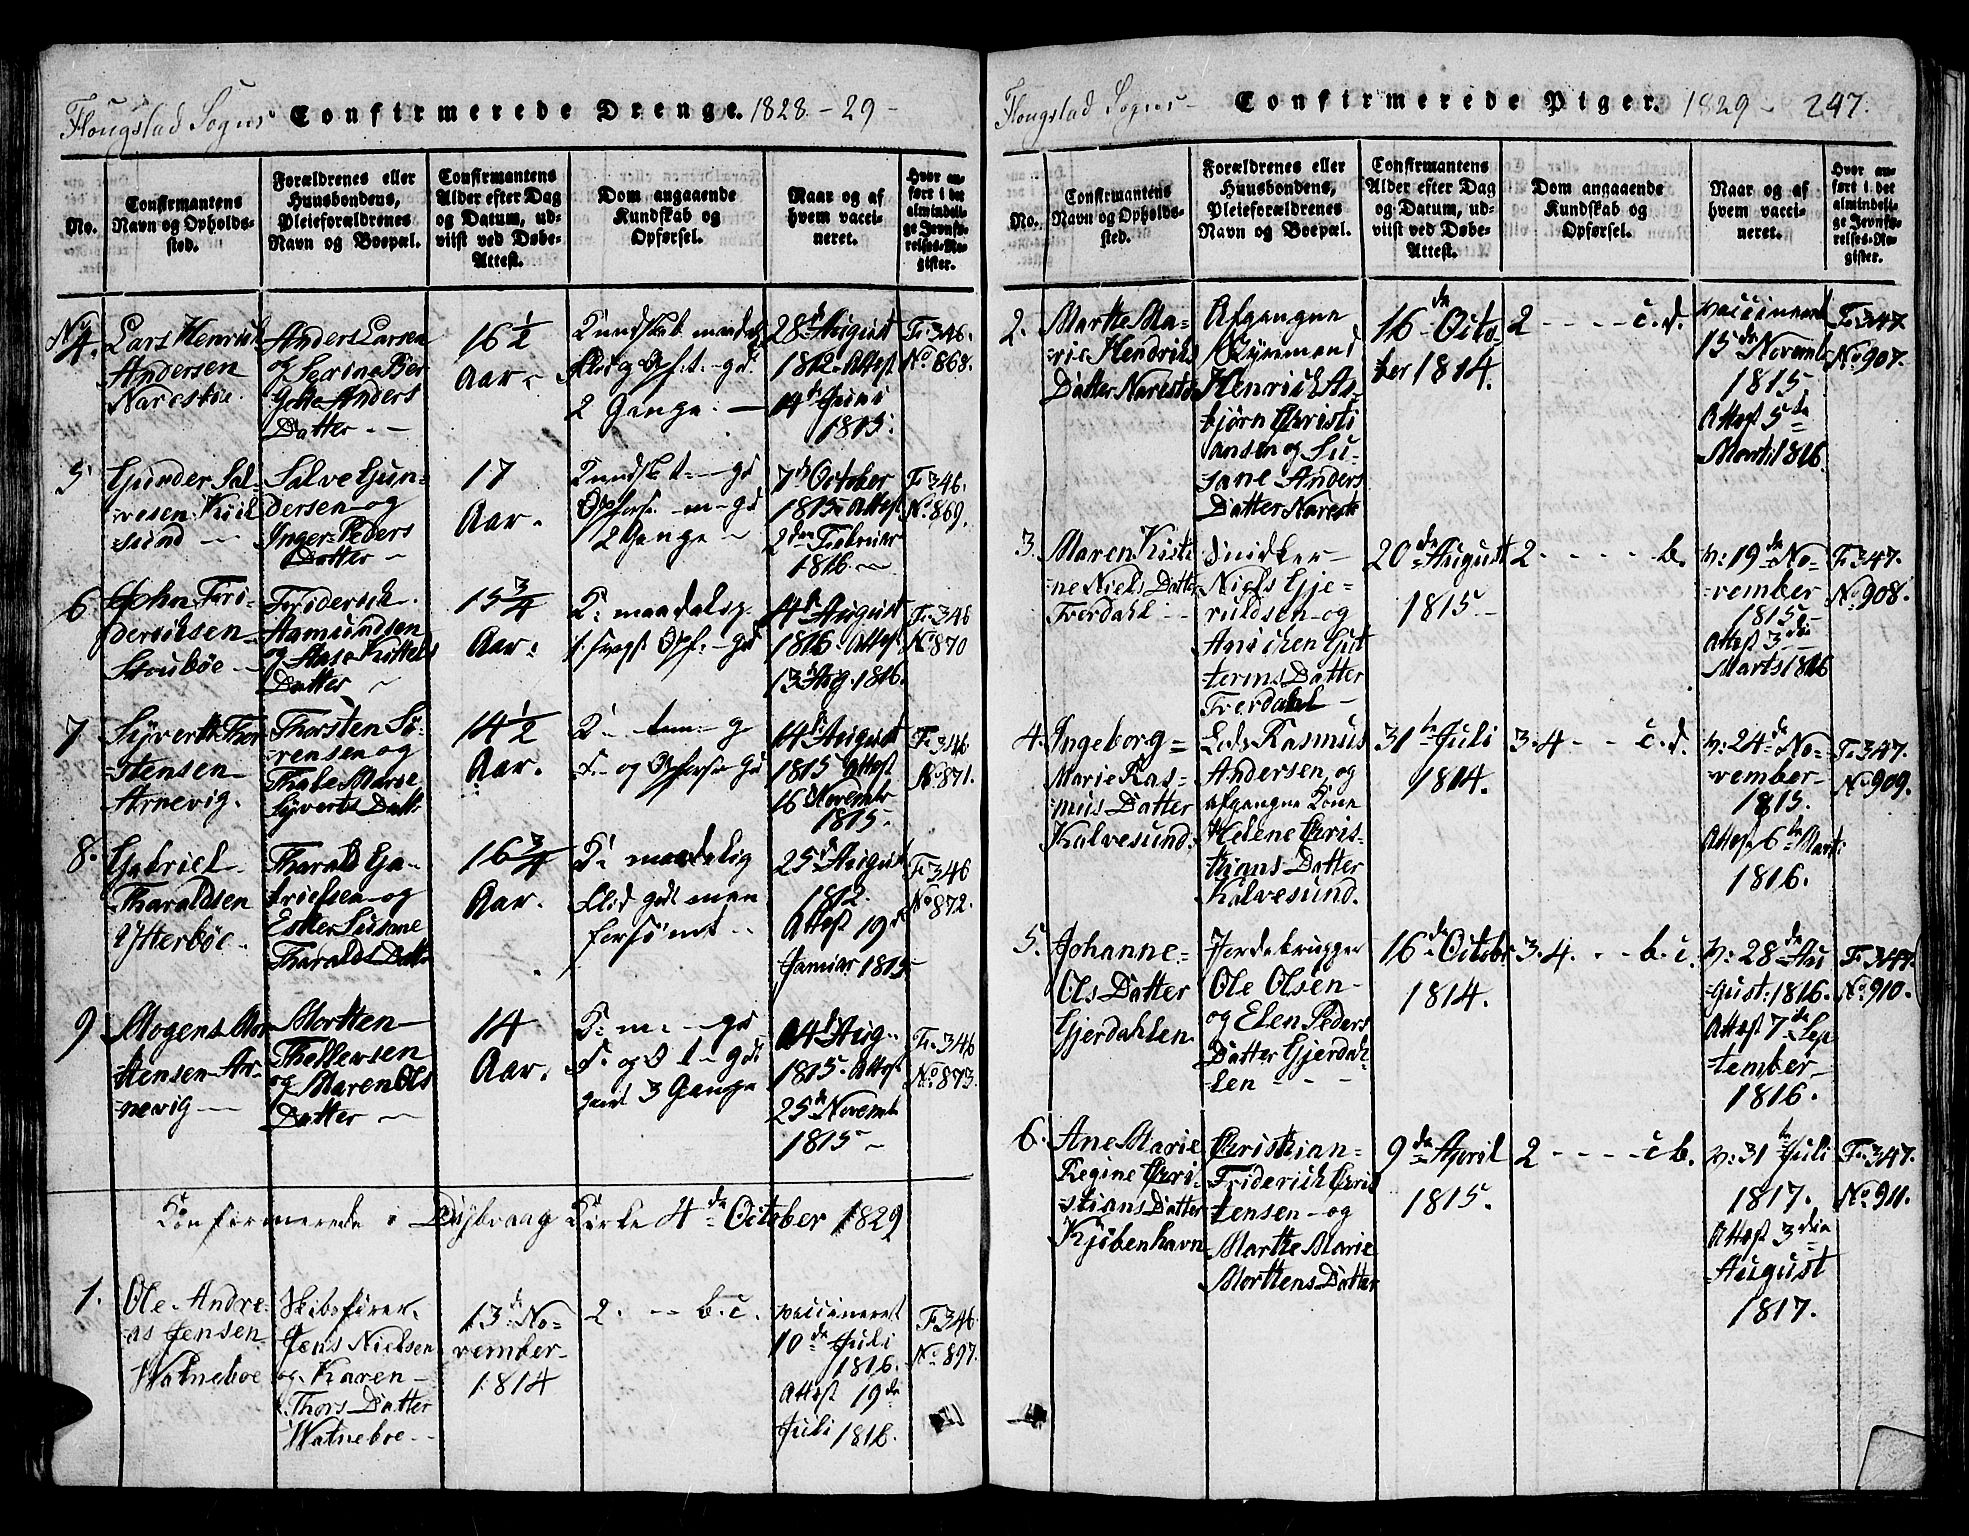 Flougstad Sogns Confirmerede Drenge. 1828-29-
No.
Confirmantens
Navn og Opholds-
sted.
Forældrenes eller
Huusbondens,
Pleieforældrenes
Navn og Boepæl.
Confirmantens
Alder efter Dag
og Datum, ud-
viist ved Døbe-
Attest.
Dom angaaende
Kundskab og
Opførsel.
Naar og af
hvem vacci-
neret.
Hvor an-
ført i det
almindeli-
ge Jevnfø-
relses-Re-
gister.
No 4.
Lars Henrich
Andersen
Narestøe.
Anders Larsen
og Serine Ber
Gitte Anders
Datter
16 1/2
Aar
2 Gange.
28 d August
1812 Attest
14 d Juni
1815.
F. 346.
No 868.
5
Gunder Sal-
vesen
-sund
Salve Gun-
dersen og
Inger Peders
Datter
17
Aar.
2 Gange
7 d October
1815 Attest
2 den Februar
1816
F. 346.
No 869.
6
John Fri-
derichsen
Stoubøe
Friderich
Aamundsen
og Aase Kittels
Datter
15 3/4
Aar.
14 d August
1816 Attest
13 d Aug. 1816.
F. 346
No 870
7
Syvert Thor
stensen
Arnevig.
Thorsten Sø-
rensen og
Thale Marie
Syverts Datt
14 1/2
Aar.
14 d August
1815 Attest
16 Novembr
1815.
F. 346
No 871.
8.
Gabriel
Tharaldsen
Ytterbøe
Tharald Ga-
brielsen og
Ester Susanne
Tharalds Datter
16 3/4
Aar.
K. maadelig
Flid god men
forsømt
25 d August
1812.
Attest 19 d
Januar 1815
F. 346
No 872.
9
Mogens Mor
tensen Ar-
nevig
Mortten
Thellevsen
og Maren Ols
Datter
14
Aar.
3 Gange
14 d Aug.
1815. Attest
25 d Novemb
1815
F. 346
No 873.
Confirmerede i Dybvaag Kirke 4 de October 1829
1.
Ole Andre-
as Jensen
Watneboe
Skibsfører
Jens Nielsen
og Karen
Thors Datter
Watneboe
13 d No-
vember
1814
2. -- b. c.
vaccineret
10 de Juli
1816.
Attest 19 de
Juli 1816.
F. 346.
No 897.
Flougstad Sogns Confirmerede Piger. 1829 - 247.
No.
Confirmantens
Navn og Opholds-
sted.
Forældrenes eller
Huusbondens,
Pleieforældrenes
Navn og Boepæl.
Confirmantens
Alder efter Dag
og Datum, ud-
viist ved Døbe-
Attest.
Dom angaaende
Kundskab og
Opførsel.
Naar og af
hvem vacci-
neret.
Hvor an-
ført i det
almindeli-
ge Jevnfø-
relses-Re-
gister.
2.
Marthe Ma-
rie Hendrichs
Datter Narestøe
Afgangne
Henrich As-
bjørn Christi
ansen og Su-
sane Anders
Datter Narestø
16 de Octo-
ber 1814.
2 ---- c. d.
vaccineret
15 de Novemb
1815
Attest 5 te
Marts 1816.
F. 347
No 907.
3.
Maren Kisti
ne Niels Datter
Tverdahl
Snidker
Niels Gje-
ruldsen og
Anichen Gut
terms Datter
Tverdahl
20 de August
1815
2. ---- b.
v: 19 de No-
vember
1815
Attest 3 die
Marts 1816
F. 347.
No 908.
4.
Ingeborg
Marie Ras-
mus Datter
Kalvesund.
Lods Rasmus
Andersen og
afgangne Kone
Helene Chris-
tians Datter
Kalvesund.
31 te Juli
1814.
3. 4 -- c. d.
v: 24 de No-
vember
1815.
Attest 6 te Marts
1816.
F. 347.
No 909.
5.
Johanne
Ols Datter
Gjerdahlen
Jordebrugger
Ole Olsen
og Elen Peders
Datter Gjerdah-
len
16 de Octobr
1814.
3. 4. -- b. c.
v: 28 de Au
gust: 1816.
Attest 7 de Sep
tember
1816.
F. 347.
No 910.
6.
Ane Marie
Regine Chri-
stians Datter
Kjøbenhavn
Christian
Friderich Chris
tensen og
Marthe Marie
Morttens Datter
9 de April
1815.
2 ---- c b.
v: 31 te Juli
1817.
Attest 3 die
August
1817.
F. 347.
No 911.